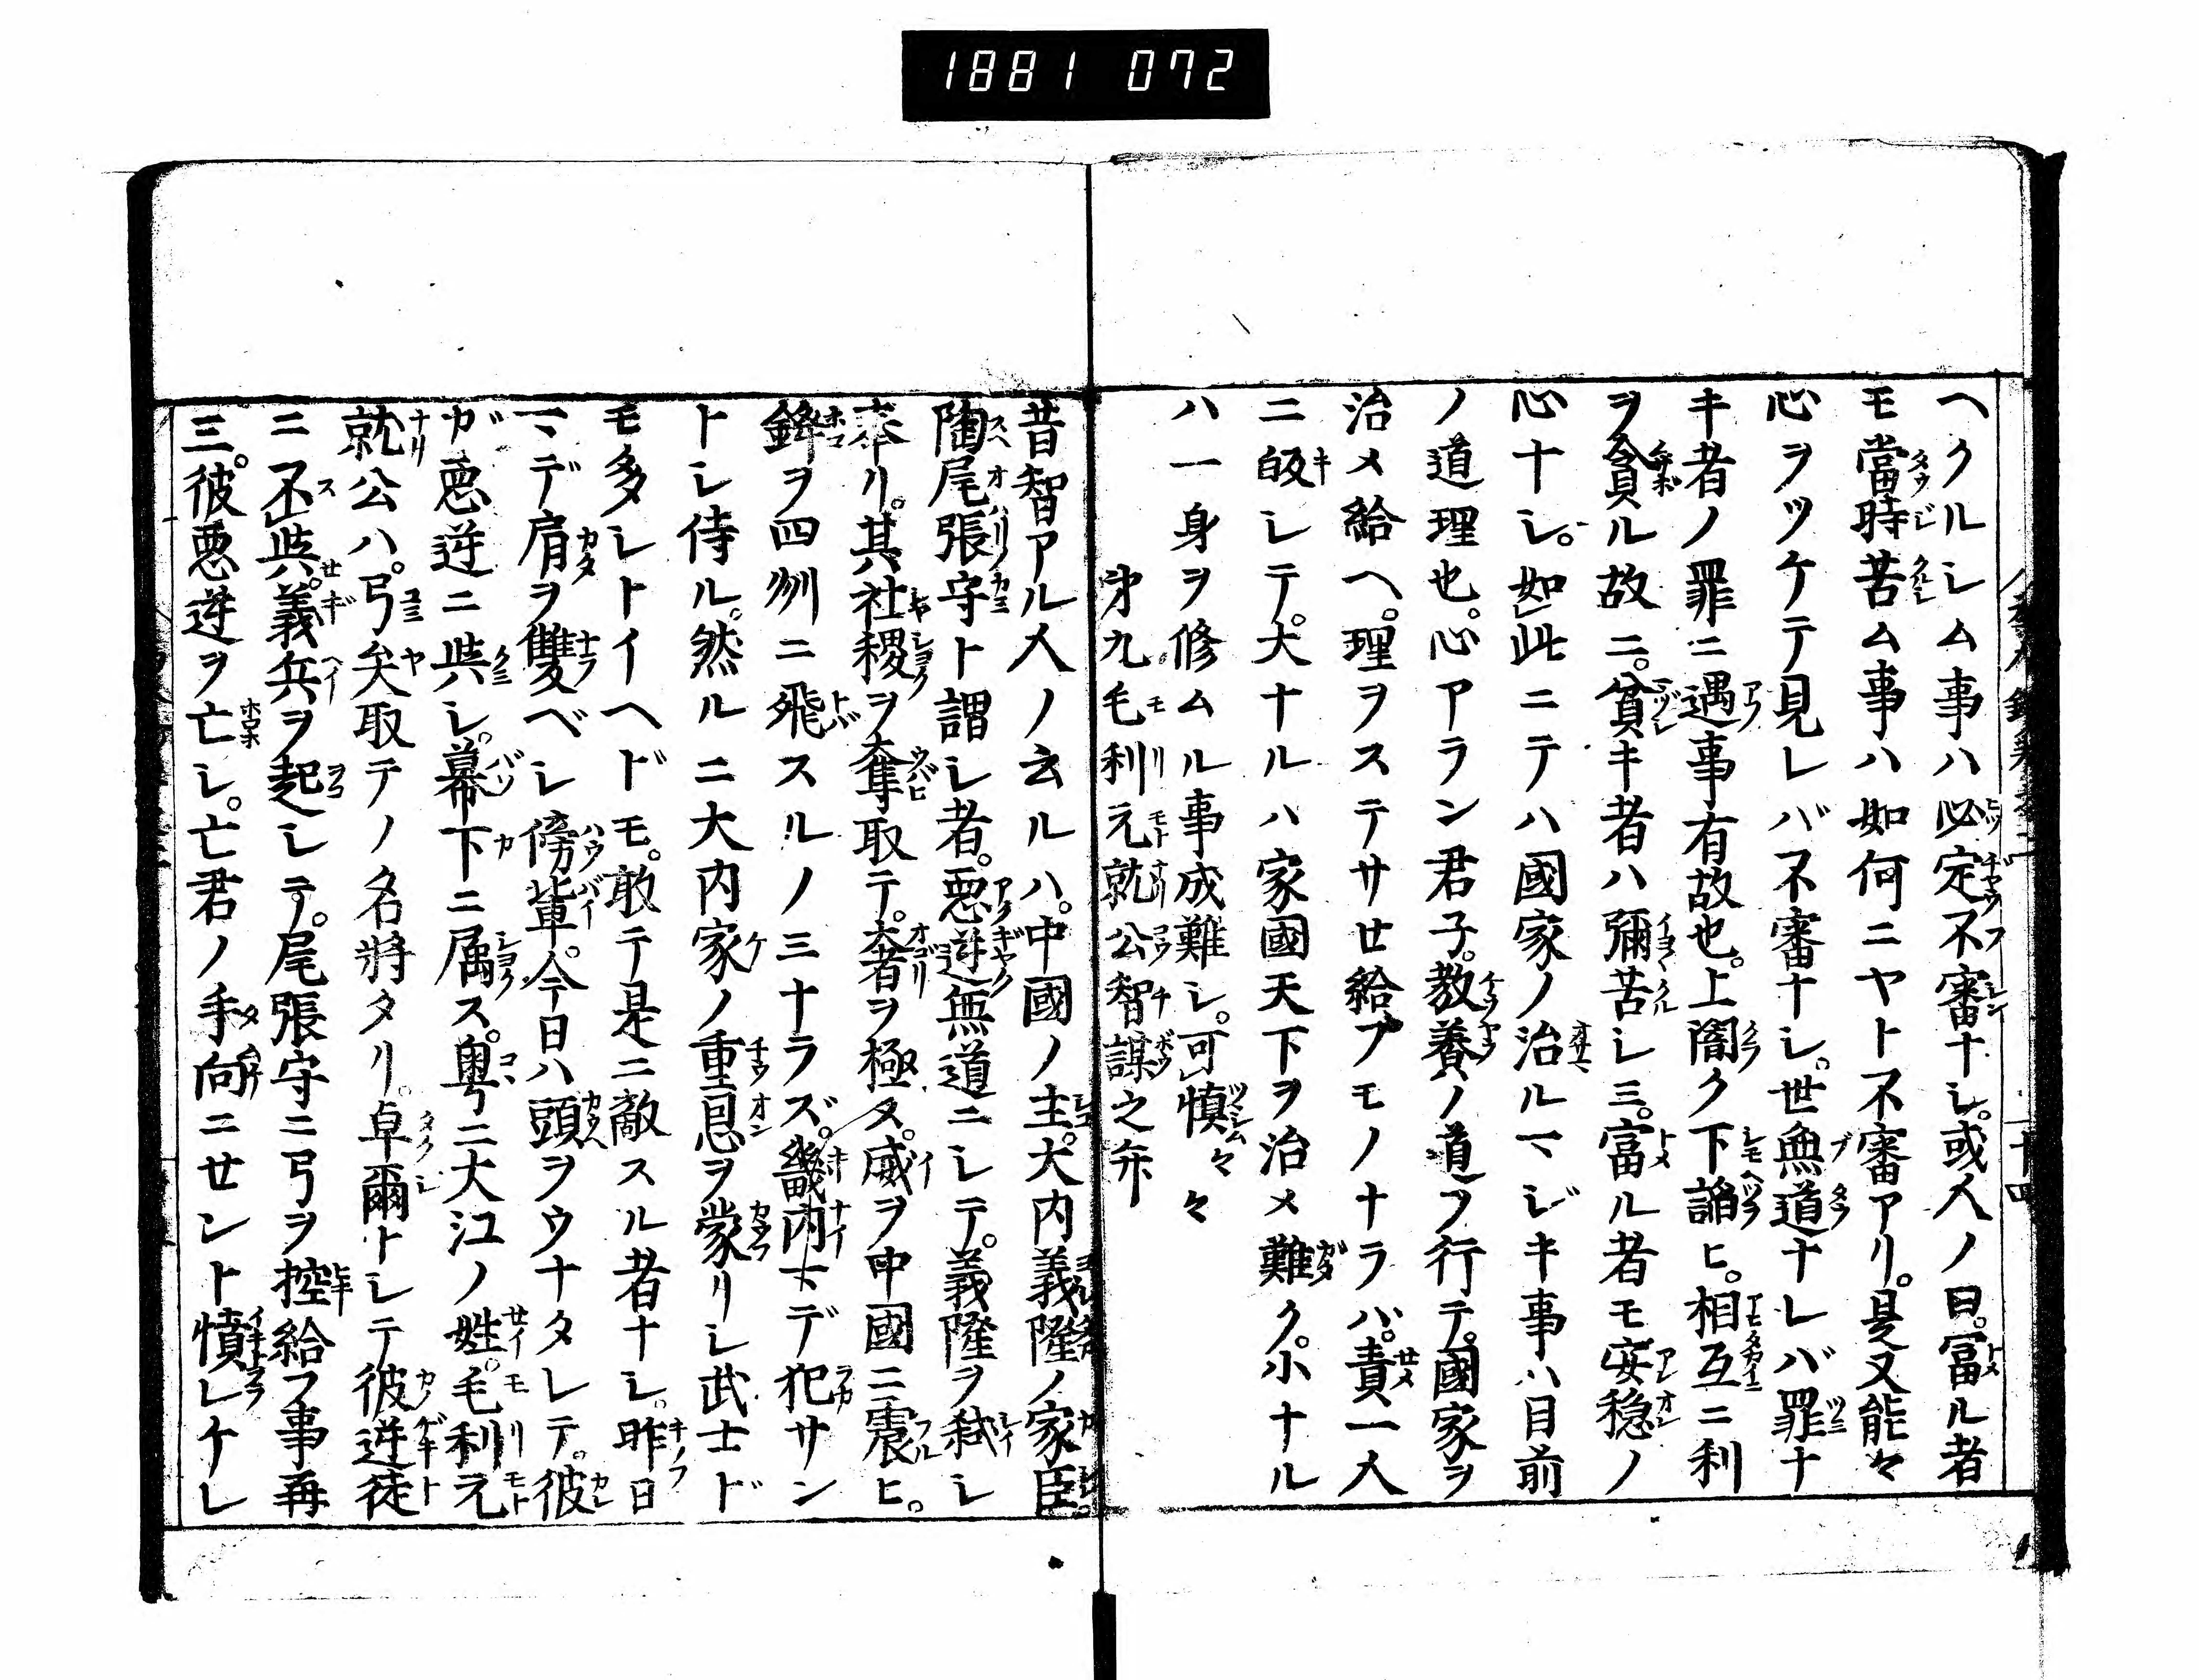 1881 072
ヘクルシム事ハ必定不審ナシ。或人ノ曰。冨ル者
モ當時苦ム事ハ如何ニヤト不審アリ。是又能々
心ヲツケテ見レバ不審ナシ。世無道ナレバ罪ナ
キ者ノ罪ニ遇事有故也。上闇ク下諂ヒ。相互ニ利
ヲ貪ル故ニ。貧キ者ハ彌苦シミ。富ル者モ安穏ノ
心ナシ。如此ニテハ國家ノ治ルマジキ事ハ目前
ノ道理也。心アラン君子。教養ノ道ヲ行テ。國家ヲ
治メ給ヘ。理ヲステサセ給フモノナラバ。責一人
ニ皈シテ。大ナルハ家國天下ヲ治メ難ク。小ナル
ハ一身ヲ修ムル事成難シ。可慎々々
第九毛利元就公智謀之弁
昔智アル人ノ云ルハ。中國ノ主。大内義隆ノ家臣。
陶尾張守ト謂シ者。悪逆無道ニシテ。義隆ヲ弑シ
奉リ。其社稷ヲ奪取テ。奢ヲ極メ。威ヲ中國ニ震ヒ。
鋒ヲ四州ニ飛スルノミナラズ。畿内マデ犯サン
トシ侍ル。然ルニ大内家ノ重恩ヲ蒙リシ武士ド
モ多シトイヘドモ。敢テ是ニ敵スル者ナシ。昨日
マデ肩ヲ雙ベシ傍輩。今日ハ頭ヲウナタレテ。彼
ガ悪逆ニ與シ。幕下ニ属ス。粤ニ大江ノ姓。毛利元
就公ハ。弓矢取テノ名將タリ。卓爾トシテ彼逆徒
ニ不與。義兵ヲ起シテ。尾張守ニ弓ヲ控給フ事再
三。彼悪逆ヲ亡シ。亡君ノ手向ニセント憤レケレ